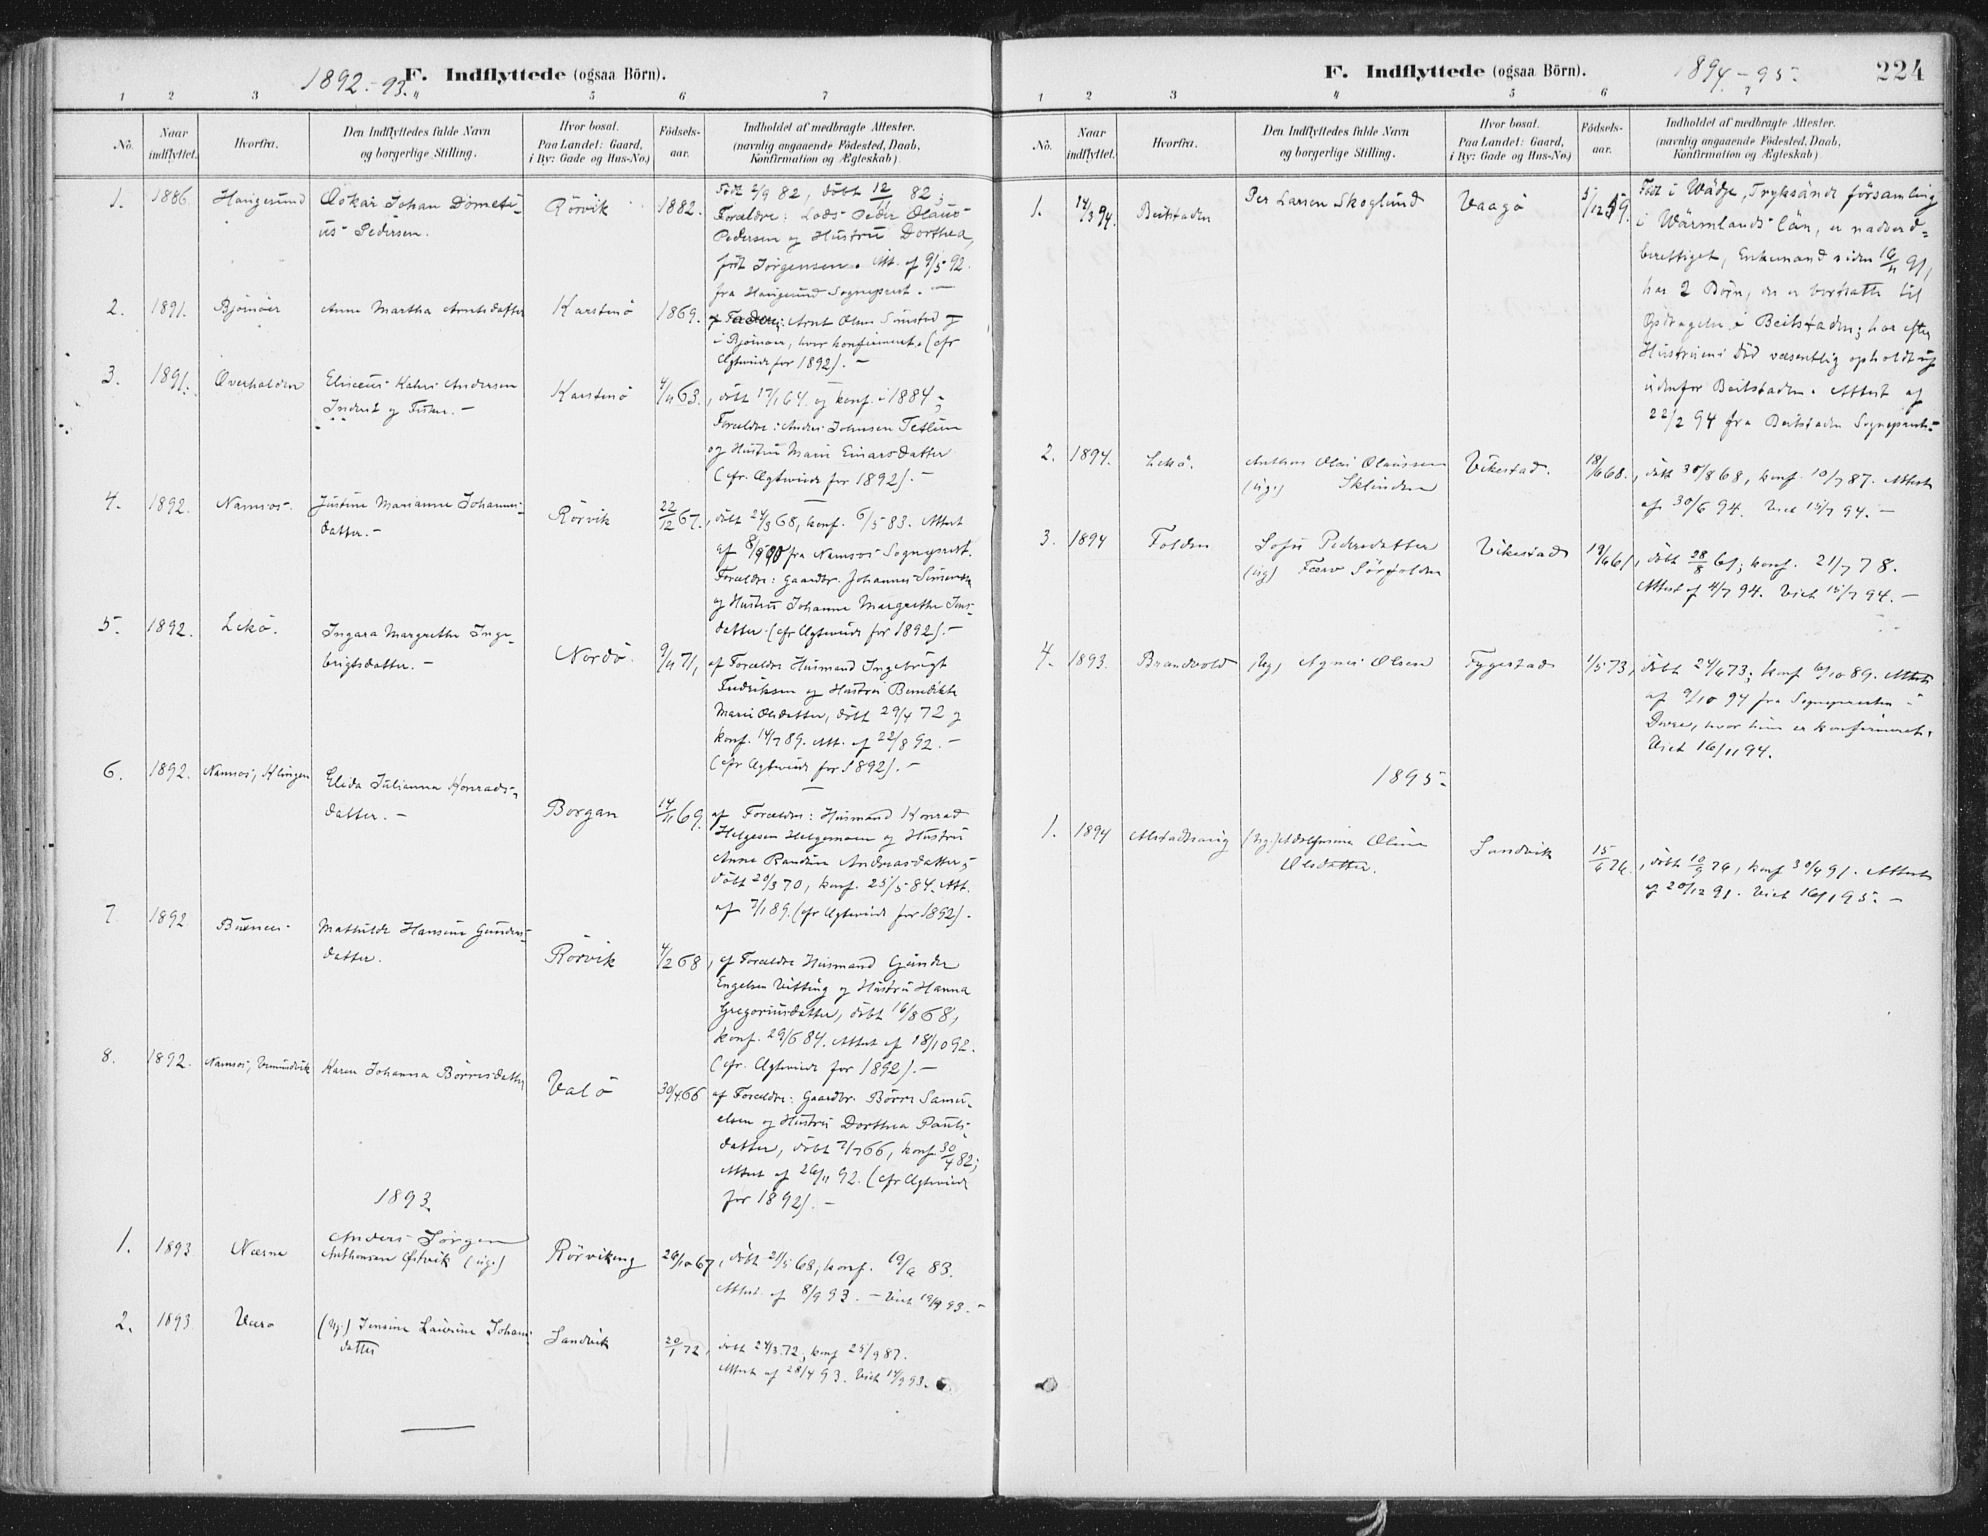 1892-93.
F. Indflyttede (ogsaa Börn).
1 2 3 4 5 6 7
No. Naar indflyttet. Hvorfra. Den Indflyttedes fulde Navn og borgerlige Stilling. Hvor bosat. Paa Landet: Gaard, i By: Gade og Hus-No.) Födsels-aar. Indholdet af medbragte Attester. (navnlig angaaende Födested, Daab, Konfirmation og Ægteskab)
1. 1886. Haugesund Oskar Johan Dometi- Rörvik 1882. Födt 2/9 82, döbt 12/11 82;
us Pedersen. Forældre: Lods Peder Olaus
Pedersen og Hustru Dorthea,
født Jörgensen. Att. af 9/5 92.
fra Haugesund Sogneprest. -
2. 1891. Bjørnør Anne Martha Arntsdatter Karstenö 1869. Arnt Olsen og
i Bjørnør, hvor konfirmeret. (cfr
Ægtevirde for 1892). -
3. 1891. Overhalden Andersen Karstenö 4/11 63. döbt 17/1 64 og konf. i 1884;
Inderst og Fisker. - Forældre: Anders Johnsen
og Hustru Marie Einarsdatter
(cfr. Ægtevirde for 1892). -
4. 1892. Namsos. Justine Marianne Johannes- Rörvik 22/12 67. döbt 24/3 68, konf. 6/5 83. Attest
datter. - af 8/9 90 fra Namsos Sogneprest.
Forældre: Gaardbr. Johannes Simonsen
og Hustru Johanna Margrethe Jens-
datter. (cfr Ægtevirde for 1892). -
5. 1892. Lekö. Ingara Margrethe Inge- Nordö. 9/11 71, af Forældre Husmand Ingebrigt
brigtsdatter. - Fredriksen og Hustru Benedikte
Marie Olsdatter, döbt 29/4 72 og
konf. 14/7 89. Att. af 22/8 92. -
(cfr Ægtevirde for 1892). -
6. 1892. Namsos, Klingen Elida Julianna Konrads- Borgan 14/11 69. af Forældre: Husmand Konrad
datter. - Helgesen og Hustru
Anne Andreasdatter;
döbt 20/3 70, konf. 25/5 84. Att.
af 7/1 89. (cfr Ægtevirde for 1892).
7. 1892 Mathilde Hansine Gunders- Rörvik 4/2 68, af Forældre Husmand Gunder
datter. Engelsen og Hustru Hanna
Gregoriusdatter, döbt 16/8 68,
konf. 29/6 84. Attest af 18/10 92.
(cfr. Ægtevirde for 1892). -
8. 1892. Namsos, Karen Johanna Börresdatter Valö 30/4 66 af Forældre: Gaardbr. Börre Samu-
elsen og Hustru Dorthea Pauls-
datter, döbt 2/7 66, konf 30/4 82;
Attest af 26/11 92. (cfr Ægtevirde
for 1892). -
1893.
1. 1893. Nærøe Anders Jörgen
Anthonsen (ug.) Rörvikeng 26/10 67, döbt 21/5 68, konf. 83.
Attest. af 8/9 93. - Viet 93. -
2. 1893. (Ug.) Jensine Laurine Johans- Sandvik 20/1 72, döbt 24/3 72, konf 25/9 87.
datter Attest af 28/4 93. Viet 93.
F. Indflyttede (ogsaa Börn).
1894-95.
224
1 2 3 4 5 6 7
No. Naar indflyttet. Hvorfra. Den Indflyttedes fulde Navn og borgerlige Stilling. Hvor bosat. Paa Landet: Gaard, i By: Gade og Hus-No.) Födsels-aar. Indholdet af medbragte Attester. (navnlig angaaende Födested, Daab, Konfirmation og Ægteskab)
1. 14/3 94. Beitstaden Per Larsen Skoglund Vaagö 5/12 59. Født i Wädje, församling
i Wärmlands län, er nadverd-
berettiget, Enkemand siden 16/11 91,
har 2 Börn, der er bortsatte til
Opdragelse i Beitstaden; har efter
Hustruens Död væsentlig opholdt sig
udenfor Beitstaden. Attest af
22/2 94 fra Beitstaden Sogneprest. -
2. 1894. Lekö. Olai Olaussen Vikestad. 18/6 68. döbt 30/8 68, konf. 10/7 87. Attest
(ug.) Sklinden af 30/6 94. Viet 15/7 94. -
3. 1894 Folden Pedersdatter Vikestad 19/6 61, döbt 28/8 61; konf. 21/7 78.
(ug) Attest af 4/7 94. Viet 15/7 94. -
4. 1893. Brandvold (Ug) Agnes Olsen Fygestad 1/5 73, döbt 24/6 73; konf 6/10 89. Attest
af 9/10 94 fra Sognepresten i
Dovre, hvor hun er konfirmeret.
Viet 16/11 94.
1895.
1. 1894 Alstadhaug (Ug.) Adolfinna Oline Sandvik 15/6 76. döbt 10/9 76, konf 30/8 91. Attest
Olsdatter. af 20/12 91. Viet 95. -